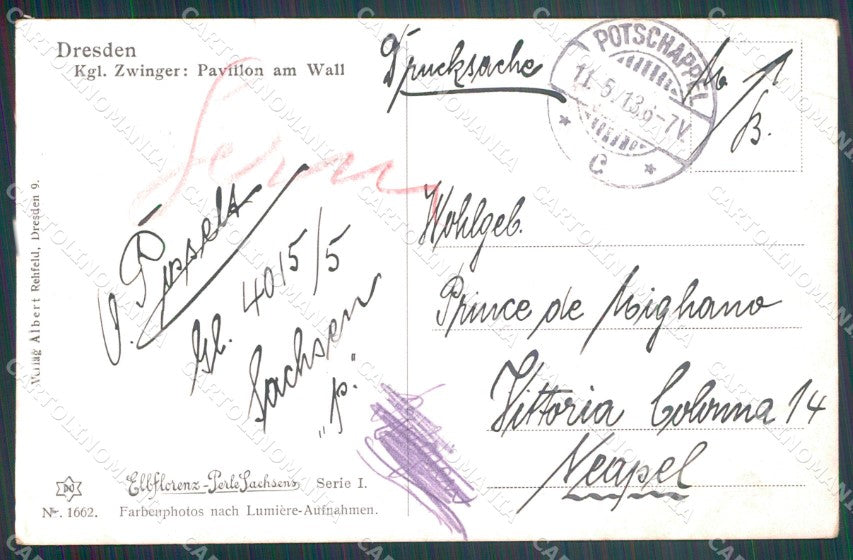 Dresden
Kgl. Zwinger: Pavillon am Wall
Drucksache
POTSCHAPPEL
11.5.13.6-7V.
* C *
Verlag Albert Rehfeld, Dresden 9.
4015/5
Sachsen
"p."
Wohlgeb.
Prince de Mighano
Vittoria Colonna 14
Neapel
Elbflorenz-Perle Sachsens Serie I.
Nr. 1662. Farbenphotos nach Lumière-Aufnahmen.
CARTOLINOMANIA